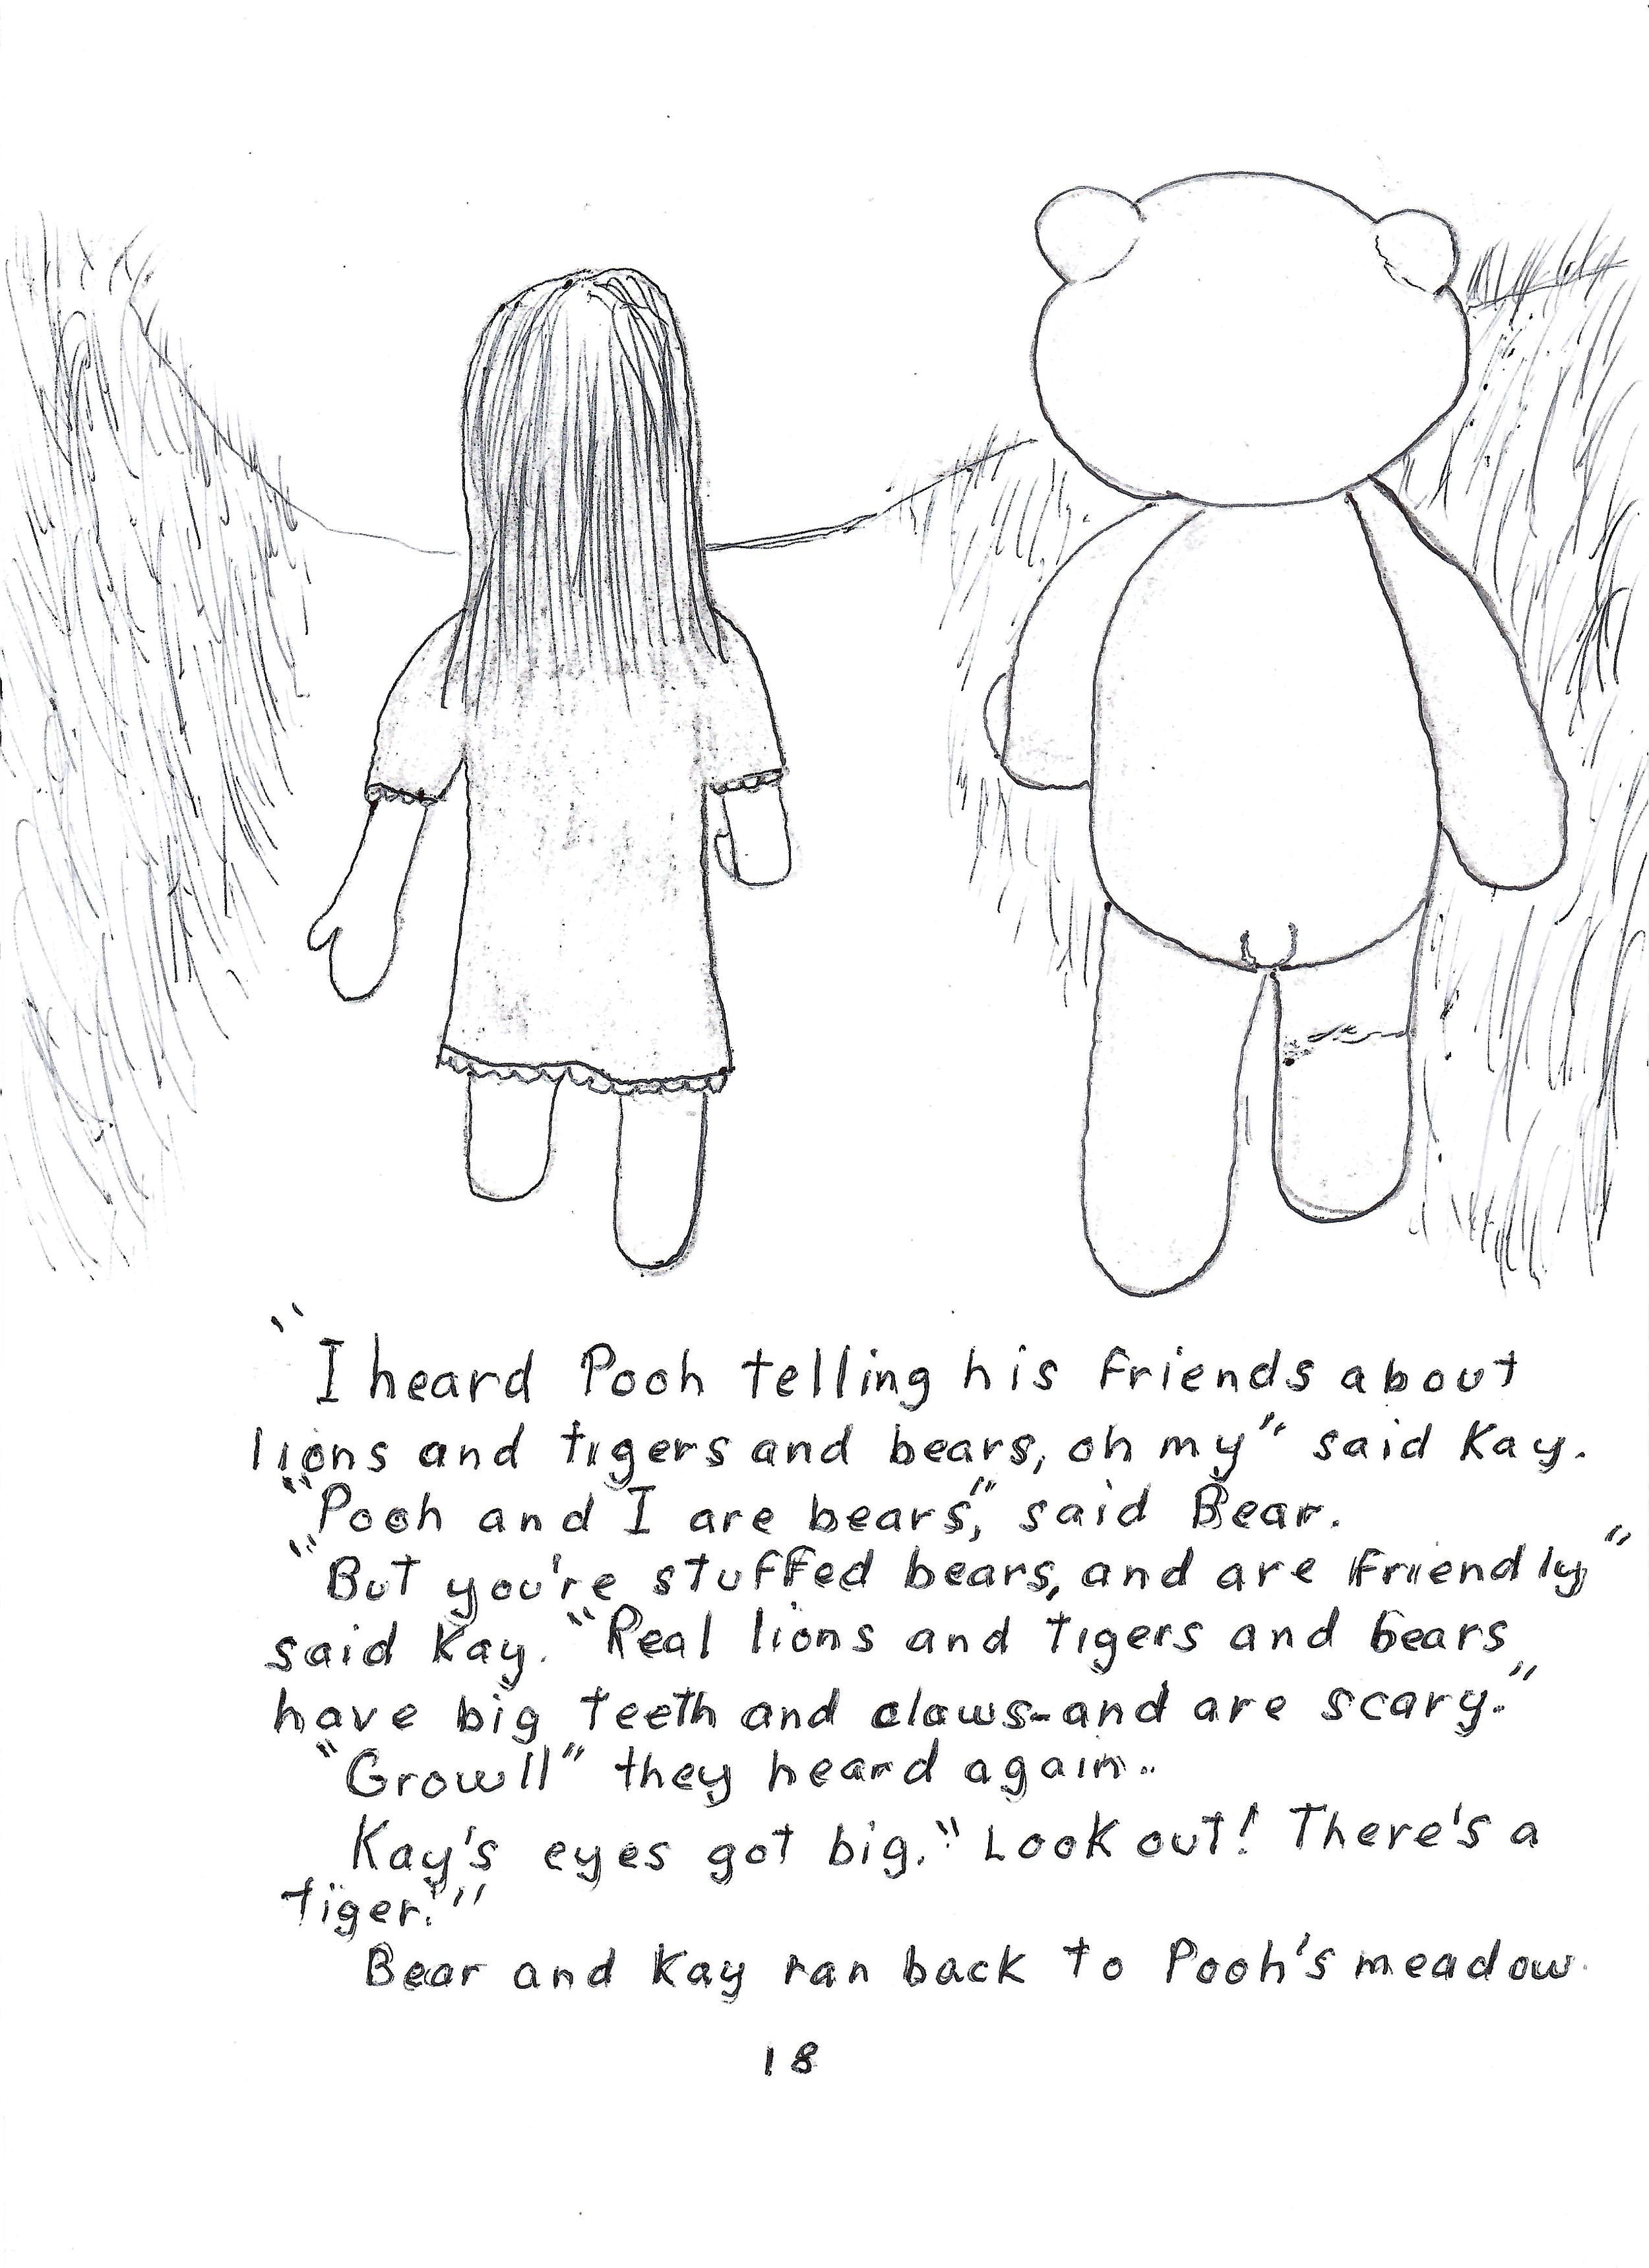 "I heard Pooh telling his friends about
lions and tigers and bears, oh my" said Kay.
"Pooh and I are bears," said Bear.
"But you're stuffed bears, and are friendly"
said Kay. "Real lions and tigers and bears
have big teeth and claws-and are scary."
"Growll" they heard again..
Kay's eyes got big. "Look out! There's a
tiger."
Bear and Kay ran back to Pooh's meadow.
18